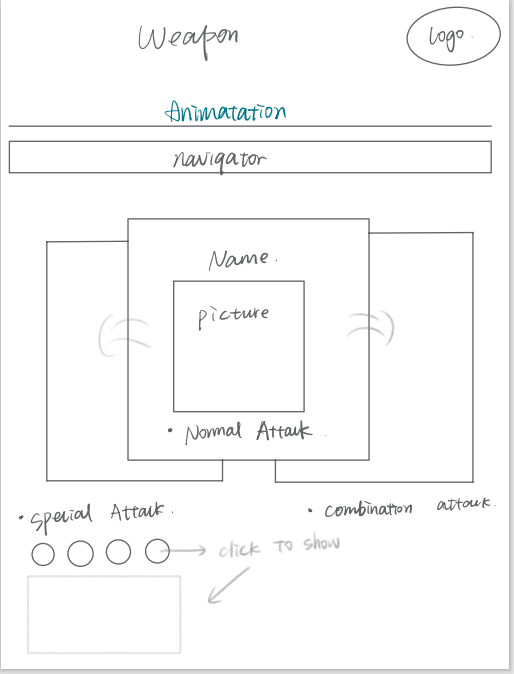 Weapon
logo.
Animatation
navigator
Name.
picture
• Normal Attack.
• Special Attack.
• Combination attack.
click to show